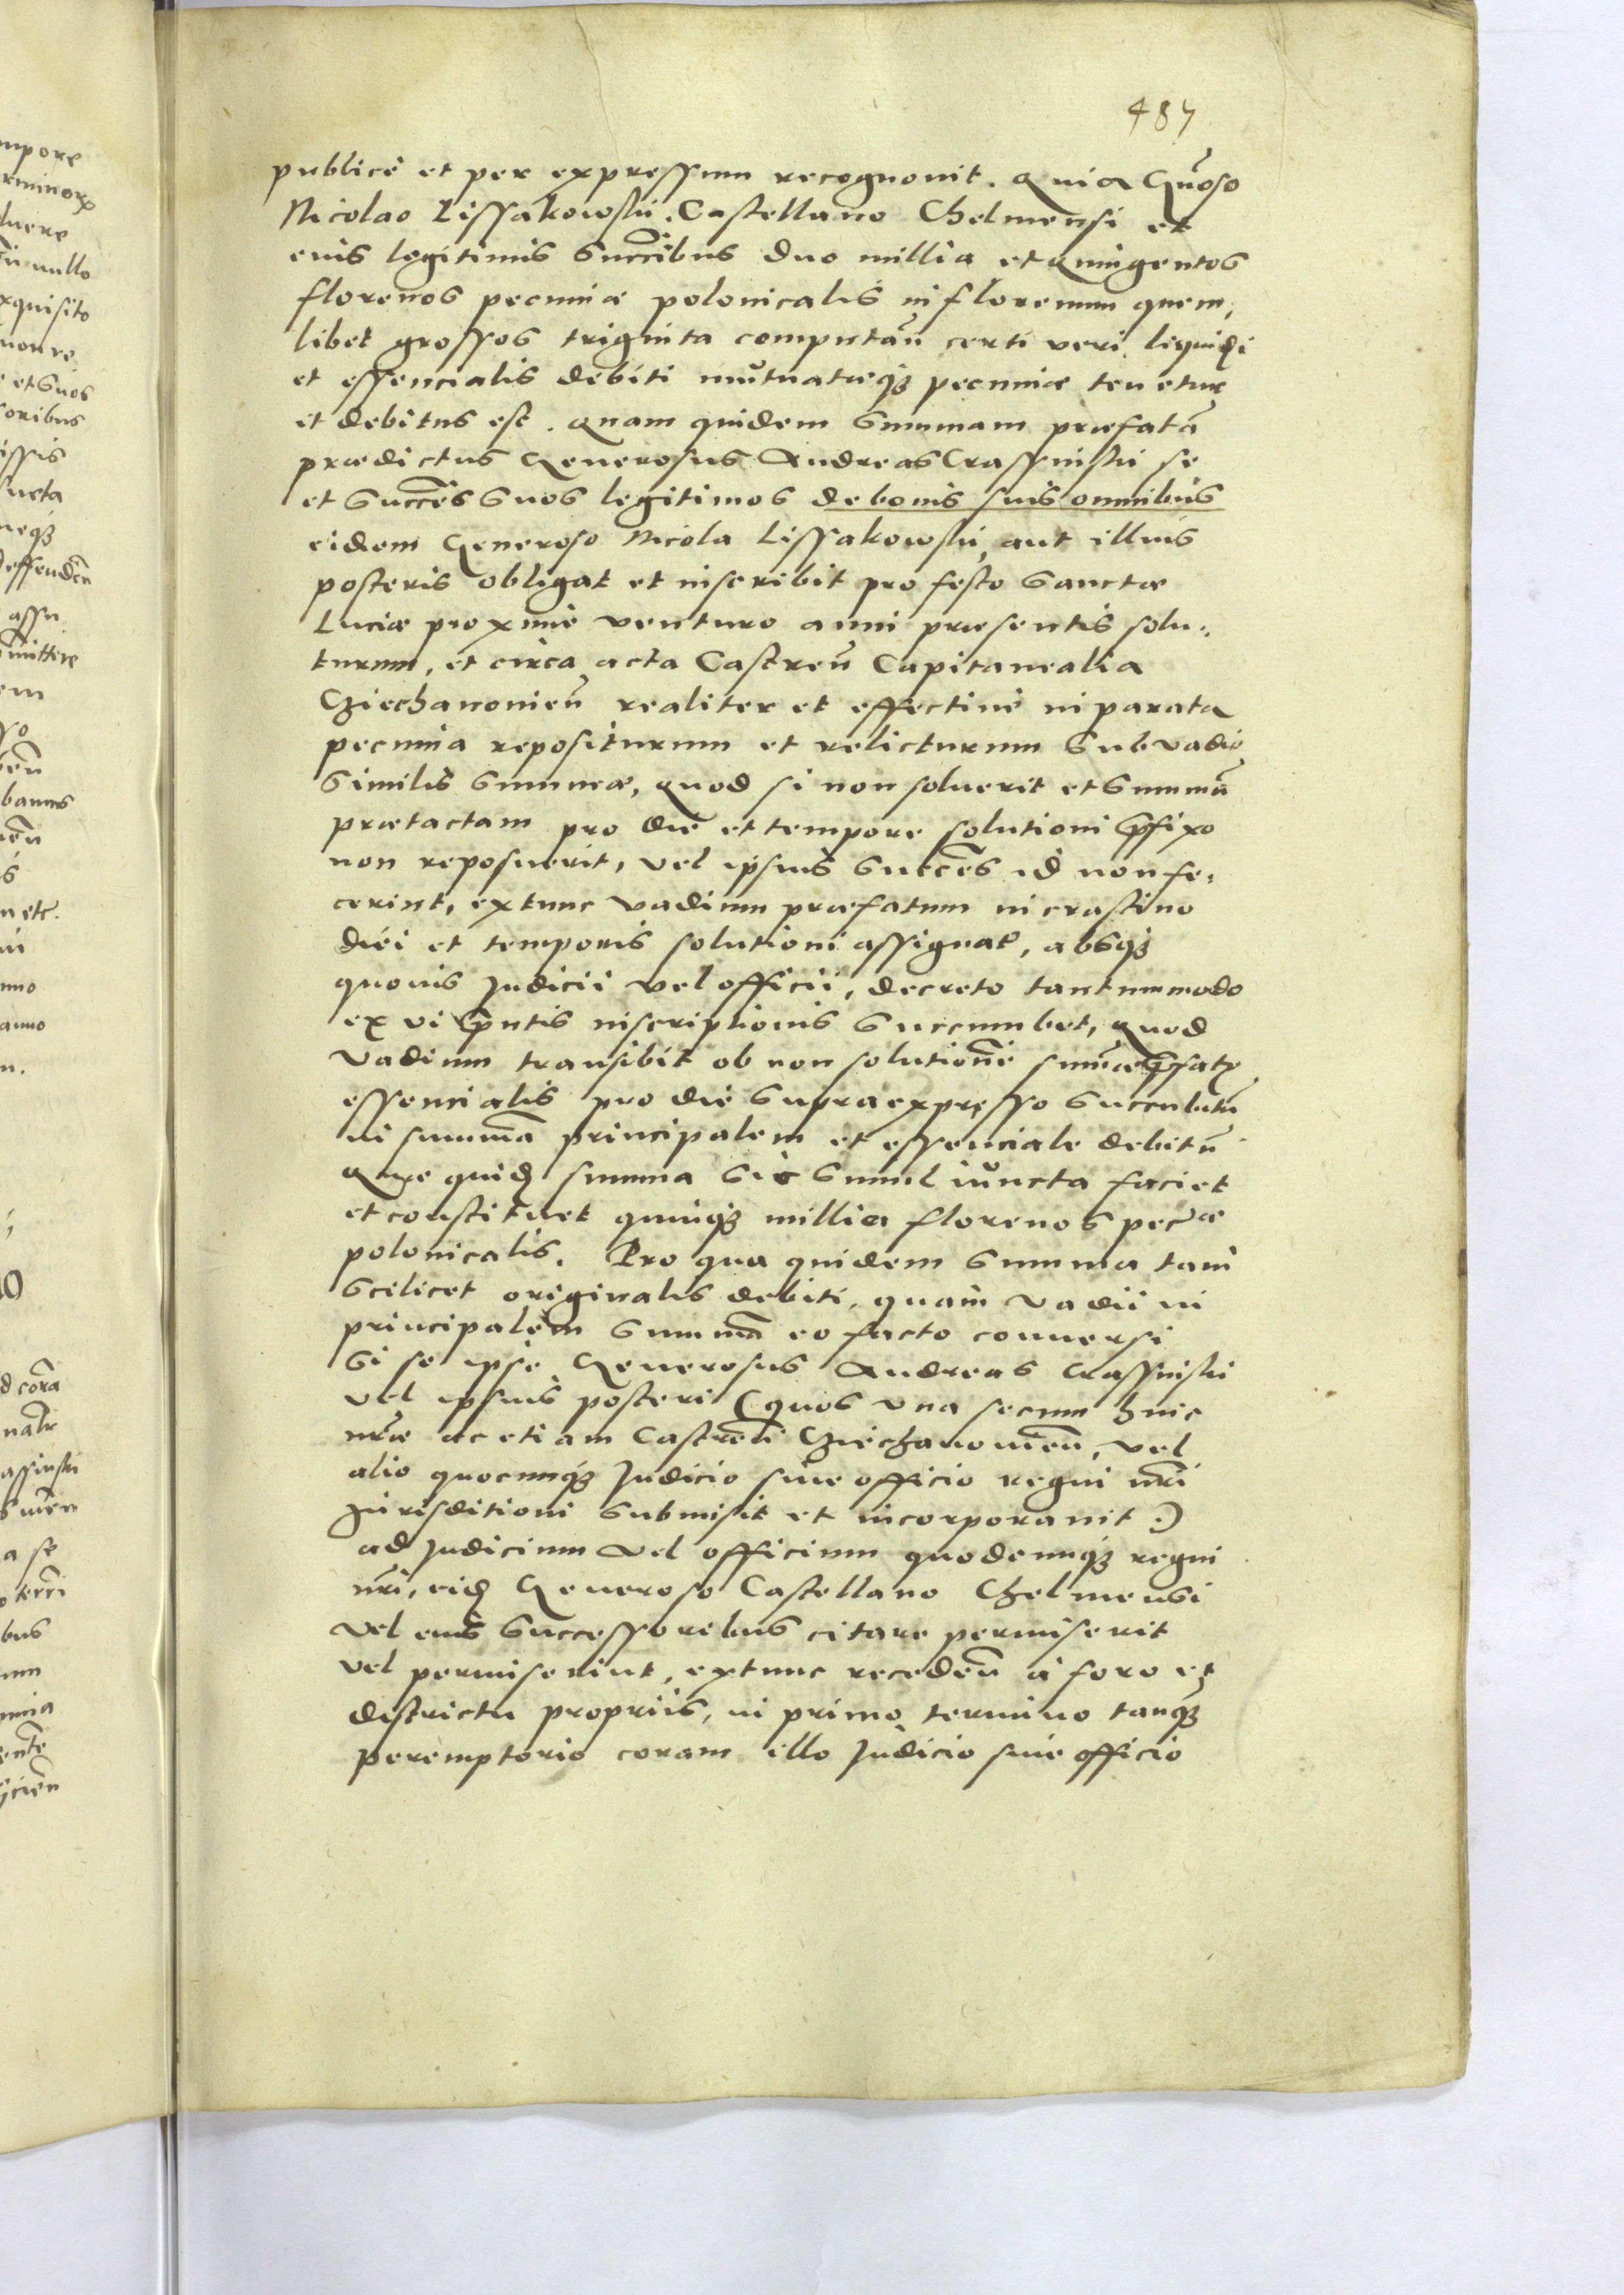 487
publice et per expressum recognovit. Quia Gñoso
Nicolao Lissakowski. Castellano Chelmensi et
eius legitimis Succribus duo millia et Quingentos
florenos pecuniæ polonicalis in florenum quem,
libet grossos triginta computañ certi veri liquidi
et essencialis debiti mutuatæq3 pecuniæ tenetur
et debitus est. Quam quidem Summam præfatã
prædictus Generosus Andreas Crassinski se
et Succēs Suos legitimos de bonis suis omnibus
eidem Generoso Nicola Lissakowski, aut illius
posteris obligat et inscribit pro festo Sanctæ
Luciæ proximè venturo anni præsentis solu-
turum, et circa acta Castreñ Capitanealia
Cziechanonieñ realiter et effectivè in parata
pecunia repositurum et relicturum Sub vadio
Similis Summæ, Quod si non solverit et Summã
prætactam pro die et tempore solutioni pfixo
non reposuerit, vel ipsius Succēs id non fe-
cerint, extunc vadium præfatum in crastino
diei et temporis solutioni assignat, absq3
quovis Judicii vel officii, decreto tantummodo
ex vi pñtis inscriptionis Succumbet, Quod
vadium transibit ob non solutionē sum̃æ pfatę
essencialis pro die Supra expresso Succubitũ
in summã principalem et essenciale debitũ
Quæ quid summa Sic Simul iuncta faciet
et constituet quinq3 millia florenos pecæ
polonicalis. Pro qua quidem Summa tam
Scilicet originalis debiti, quàm vadii in
principalem Summã eo facto conversi
Si se ipse Generosus Andreas Crassinski
vel ipsius posteri (quos una secum huic
nræ ac etiam Castreñ Cziechanonieñ, vel
alio quocunq3 Judicio sive officio regni nri
Jurisditioni Submisit et incorporavit:)
ad Judicium vel officium quodcunq3 regni
nri, eid Generoso Castellano Chelmensi
vel eius Successoribus citare permiserit
vel permiserint, extunc recedeñ à foro et
districtu propriis, in primo termino tanq3
peremptorio coram illo Judicio sive officio